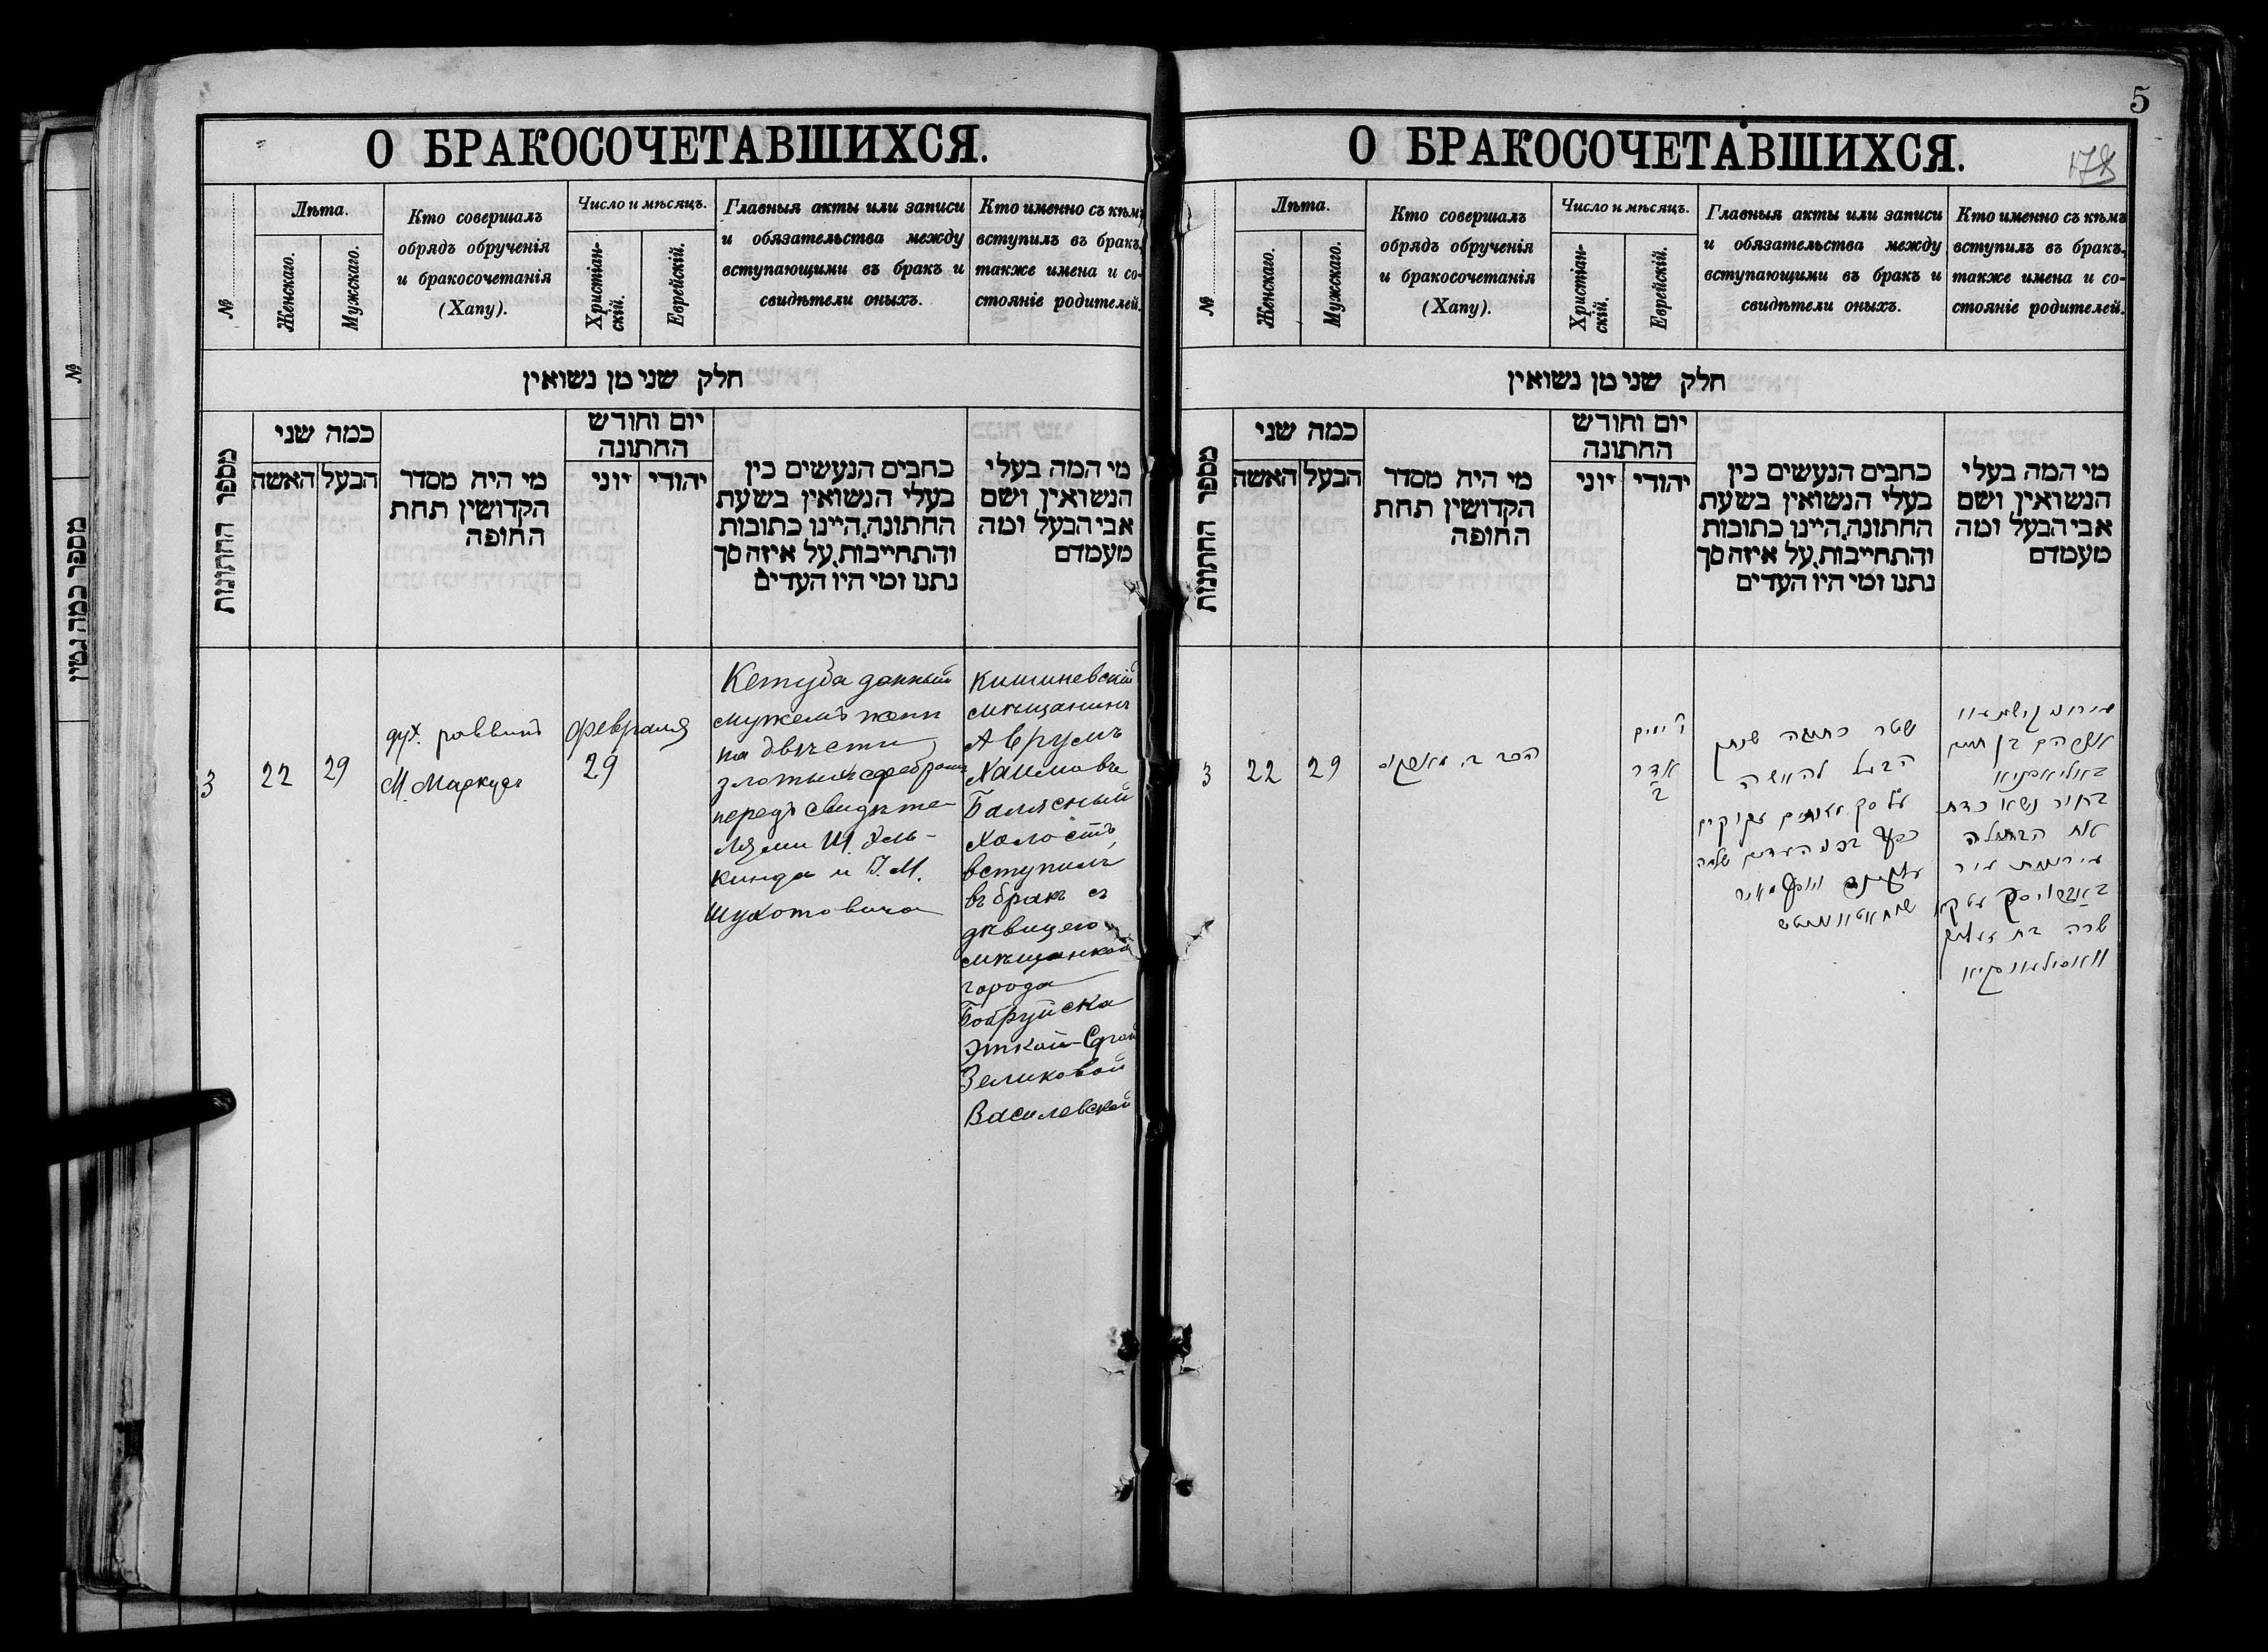 О БРАКОСОЧЕТАВШИХСЯ.
№
Лѣта.
Женскаго.
Мужскаго.
Кто совершалъ
обрядъ обрученія
и бракосочетанія
(Хапу).
Число и мѣсяцъ.
Христіан-
скій.
Еврейскій.
Главныя акты или записи
и обязательства между
вступающими въ бракъ и
свидѣтели оныхъ.
Кто именно съ кѣмъ
вступилъ въ бракъ,
также имена и со-
стояніе родителей.
חלק שני מן נשואין
מספר החתונות
כמה שני
האשה
הבעל
מי היה מסדר
הקדושין תחת
החופה
יום וחודש
החתונה
יוני
יהודי
כתבים הנעשים בין
בעלי הנשואין בשעת
החתונה, היינו כתובות
והתחייבות, על איזה סך
נתנו ומי היו העדים
מי המה בעלי
הנשואין ושם
אבי הבעל ומה
מעמדם
3
22
29
дух. раввинъ
М. Маркусъ
Февраля
29
Кетуба данный
мужемъ жени
на двѣсти
злотыхъ серебромъ
передъ свидѣте-
лями Ш. Эль-
кинда и І. М.
Шухотовича
Кишиневскій
мѣщанинъ
Аврумъ
Хаимовъ
Балясный
холостъ,
вступилъ
въ бракъ съ
дѣвицею
мѣщанкой
города
Бобруйска
Эткой-Срой
Зеликовой
Василевской
№
מספר כמה גטין
5
О БРАКОСОЧЕТАВШИХСЯ.
178
№
Лѣта.
Женскаго.
Мужскаго.
Кто совершалъ
обрядъ обрученія
и бракосочетанія
(Хапу).
Число и мѣсяцъ.
Христіан-
скій.
Еврейскій.
Главныя акты или записи
и обязательства между
вступающими въ бракъ и
свидѣтели оныхъ.
Кто именно съ кѣмъ
вступилъ въ бракъ,
также имена и со-
стояніе родителей.
חלק שני מן נשואין
מספר החתונות
כמה שני
האשה
הבעל
מי היה מסדר
הקדושין תחת
החופה
יום וחודש
החתונה
יוני
יהודי
כתבים הנעשים בין
בעלי הנשואין בשעת
החתונה, היינו כתובות
והתחייבות, על איזה סך
נתנו ומי היו העדים
מי המה בעלי
הנשואין ושם
אבי הבעל ומה
מעמדם
3
22
29
הרב מ. מארקוס
אדר
שטר כתובה שנתן
הבעל להאשה
על סך מאתים זקוקים
כסף בפני העדים שלמה
אברהם בן חיים
באליאסניא
בחור נשא כדת
את הבתולה
עיר
שרה בת זעליג
וואסילעווסקיא